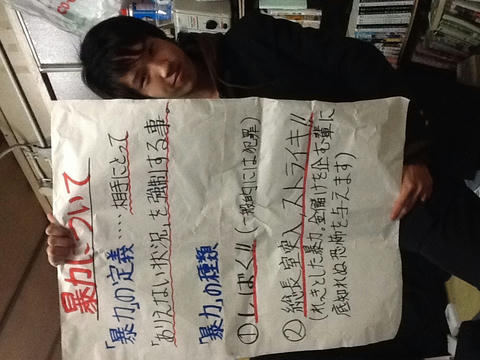 暴力について
「暴力」の定義‥‥相手にとって
「ありえない状況」を強制する事
「暴力」の種類
①しばく!!(一般的には犯罪)
②総長室突入ストライキ!!
(れきとした暴力。金儲けを企む輩に
底知れぬ恐怖を与えます)